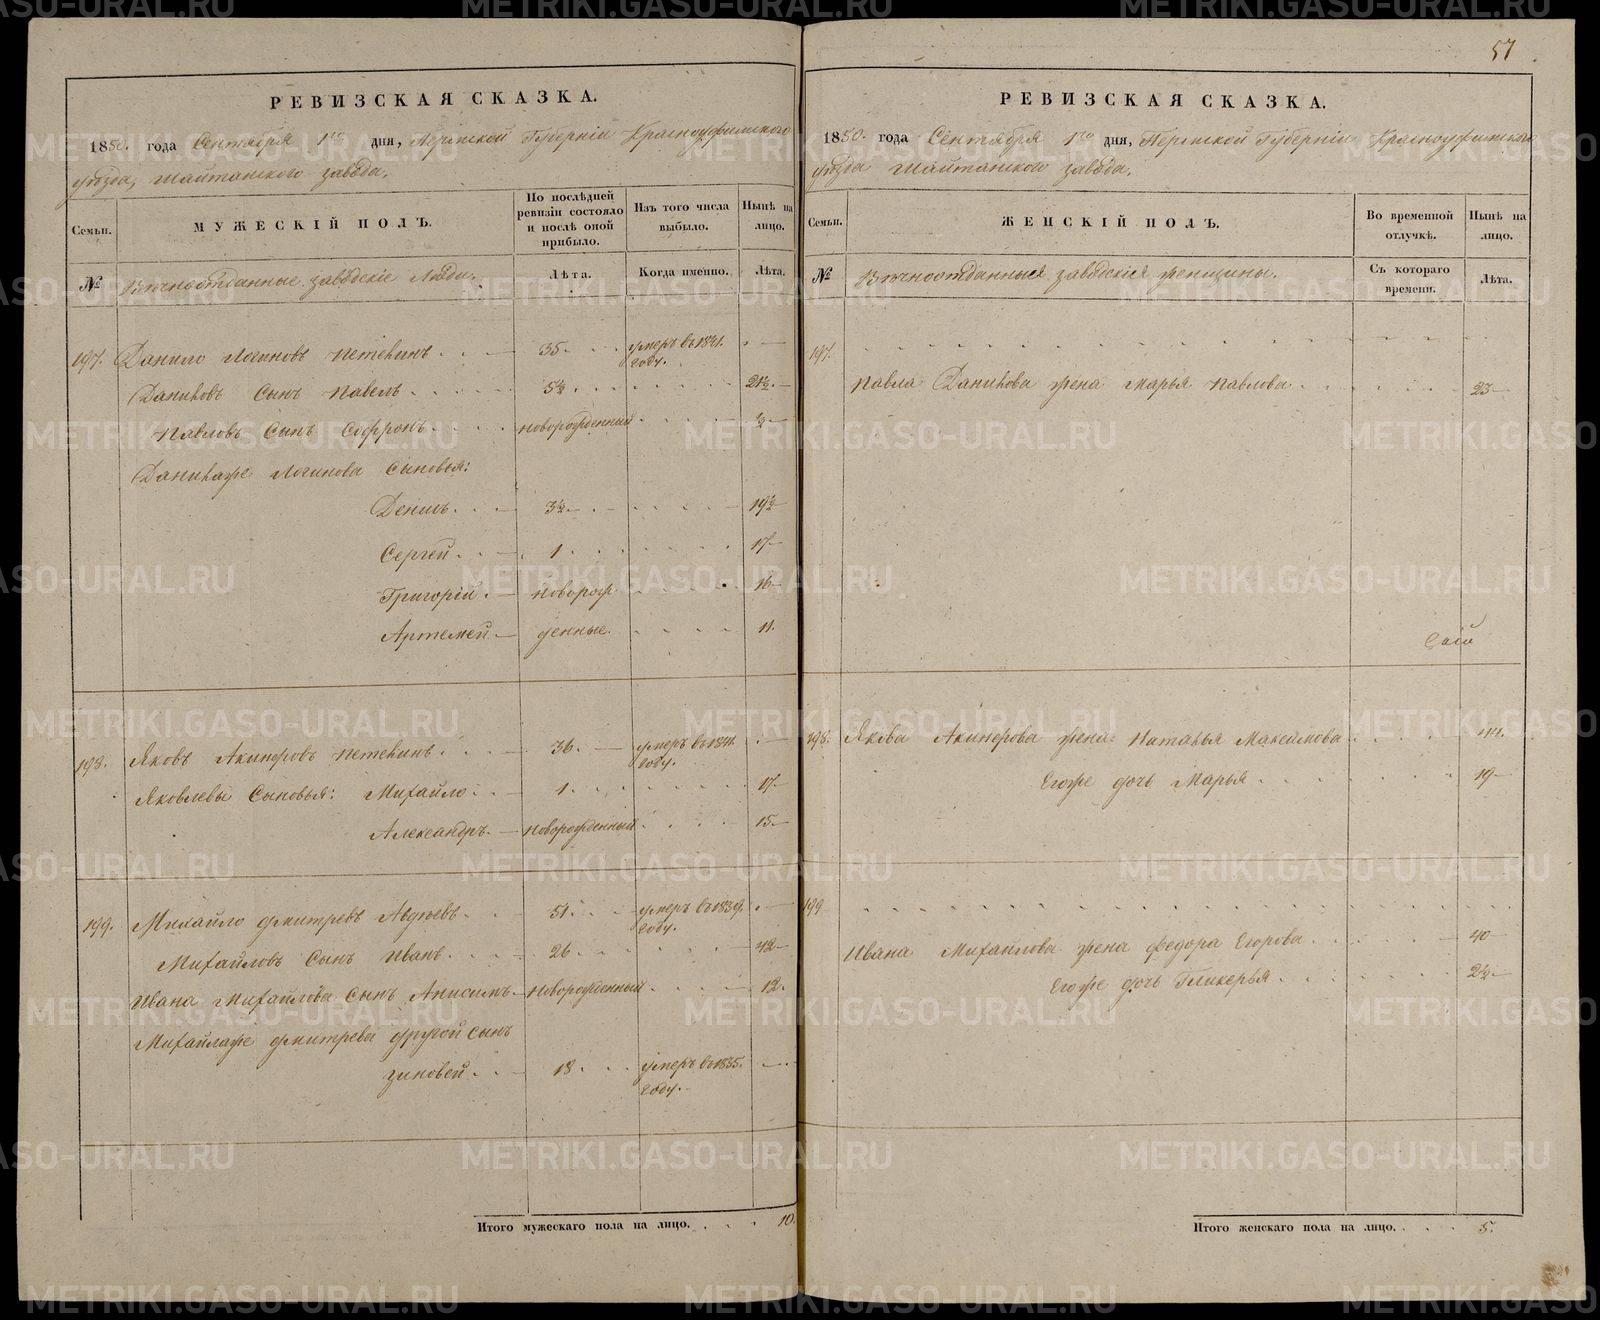 57
РЕВИЗСКАЯ СКАЗКА.
1850. года Сентября 1го дня, Пермской Губерніи Красноуфимского
уѣзда, Шайтанского завода.
Семьи.
МУЖЕСКІЙ ПОЛЪ.
По послѣдней ревизіи состояло и послѣ оной прибыло.
Изъ того числа выбыло.
Нынѣ на лицо.
№
Вѣчноотданные заводскіе Люди.
Лѣта.
Когда именно.
Лѣта.
197. Данило Логиновъ Петекинъ 35. умеръ въ 1841. году.
Даниловъ Сынъ Павелъ 5½ 21½.
Павловъ Сынъ Софронъ новорожденный ½
Данилаже Логинова Сыновья:
Денисъ 3½ 19½
Сергей 1 17
Григорій Новорож 16
Артемей денные. 11.
198. Яковъ Акинфровъ Петекинъ 36. умеръ въ 1841. году.
Яковлевы Сыновья: Михайло 1. 17
Александръ Новорожденный 15
199. Михайло Дмитревъ Авдѣевъ 51. умеръ въ 1839. году.
Михайловъ Сынъ Иванъ 26 42
Ивана Михайлова Сынъ Анисимъ Новорожденный 12.
Михайлаже Дмитрева другой сынъ
Зиновей 18 умеръ въ 1835. году.
Итого мужескаго пола на лицо. 10.
РЕВИЗСКАЯ СКАЗКА.
1850. года Сентября 1го дня, Пермской Губерніи Красноуфимского
уѣзда Шайтанского завода.
Семьи.
ЖЕНСКІЙ ПОЛЪ.
Во временной отлучкѣ.
Нынѣ на лицо.
№
Вѣчноотданныя заводскія женщины.
Съ котораго времени.
Лѣта.
197.
Павла Данилова жена Марья Павлова 23
198. Якова Акинфрова жена Наталья Максимова 44.
Егоже дочь Марья 19
199
Ивана Михайлова жена Федора Егорова 40
Егоже дочь Гликерья 2½
Итого женскаго пола на лицо. 5.
METRIKI.GASO-URAL.RU